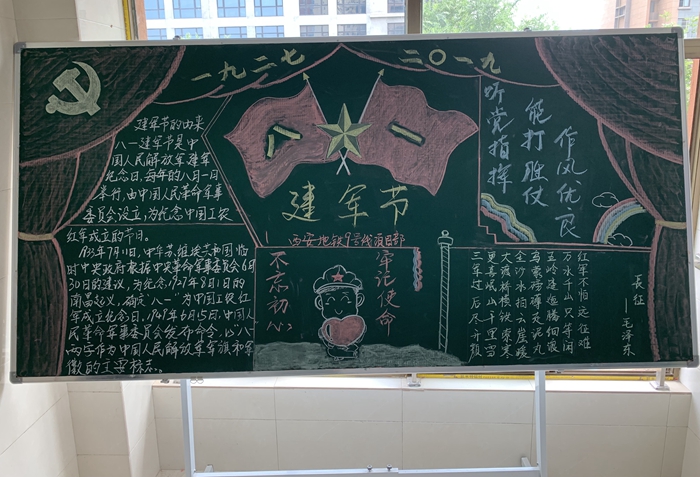 一九二七 二〇一九
建军节的由来
八一建军节是中
国人民解放军建军
纪念日，每年的八月一日
举行，由中国人民革命军事
委员会设立，为纪念中国工农
红军成立的节日。
1933年7月11日，中华苏维埃共和国临
时中央政府根据中央革命军事委员会6月
30日的建议，为纪念1927年8月1日的
南昌起义，确定"八一"为中国工农红
军成立纪念日。1949年6月15日，中国人
民革命军事委员会发布命令，以"八一"
两字作为中国人民解放军军旗和军
徽的主要标志。
八一
建军节
西安地铁9号线项目部
不忘初心
牢记使命
听党指挥
能打胜仗
作风优良
长征
——毛泽东
红军不怕远征难
万水千山只等闲
五岭逶迤腾细浪
乌蒙磅礴走泥丸
金沙水拍云崖暖
大渡桥横铁索寒
更喜岷山千里雪
三军过后尽开颜